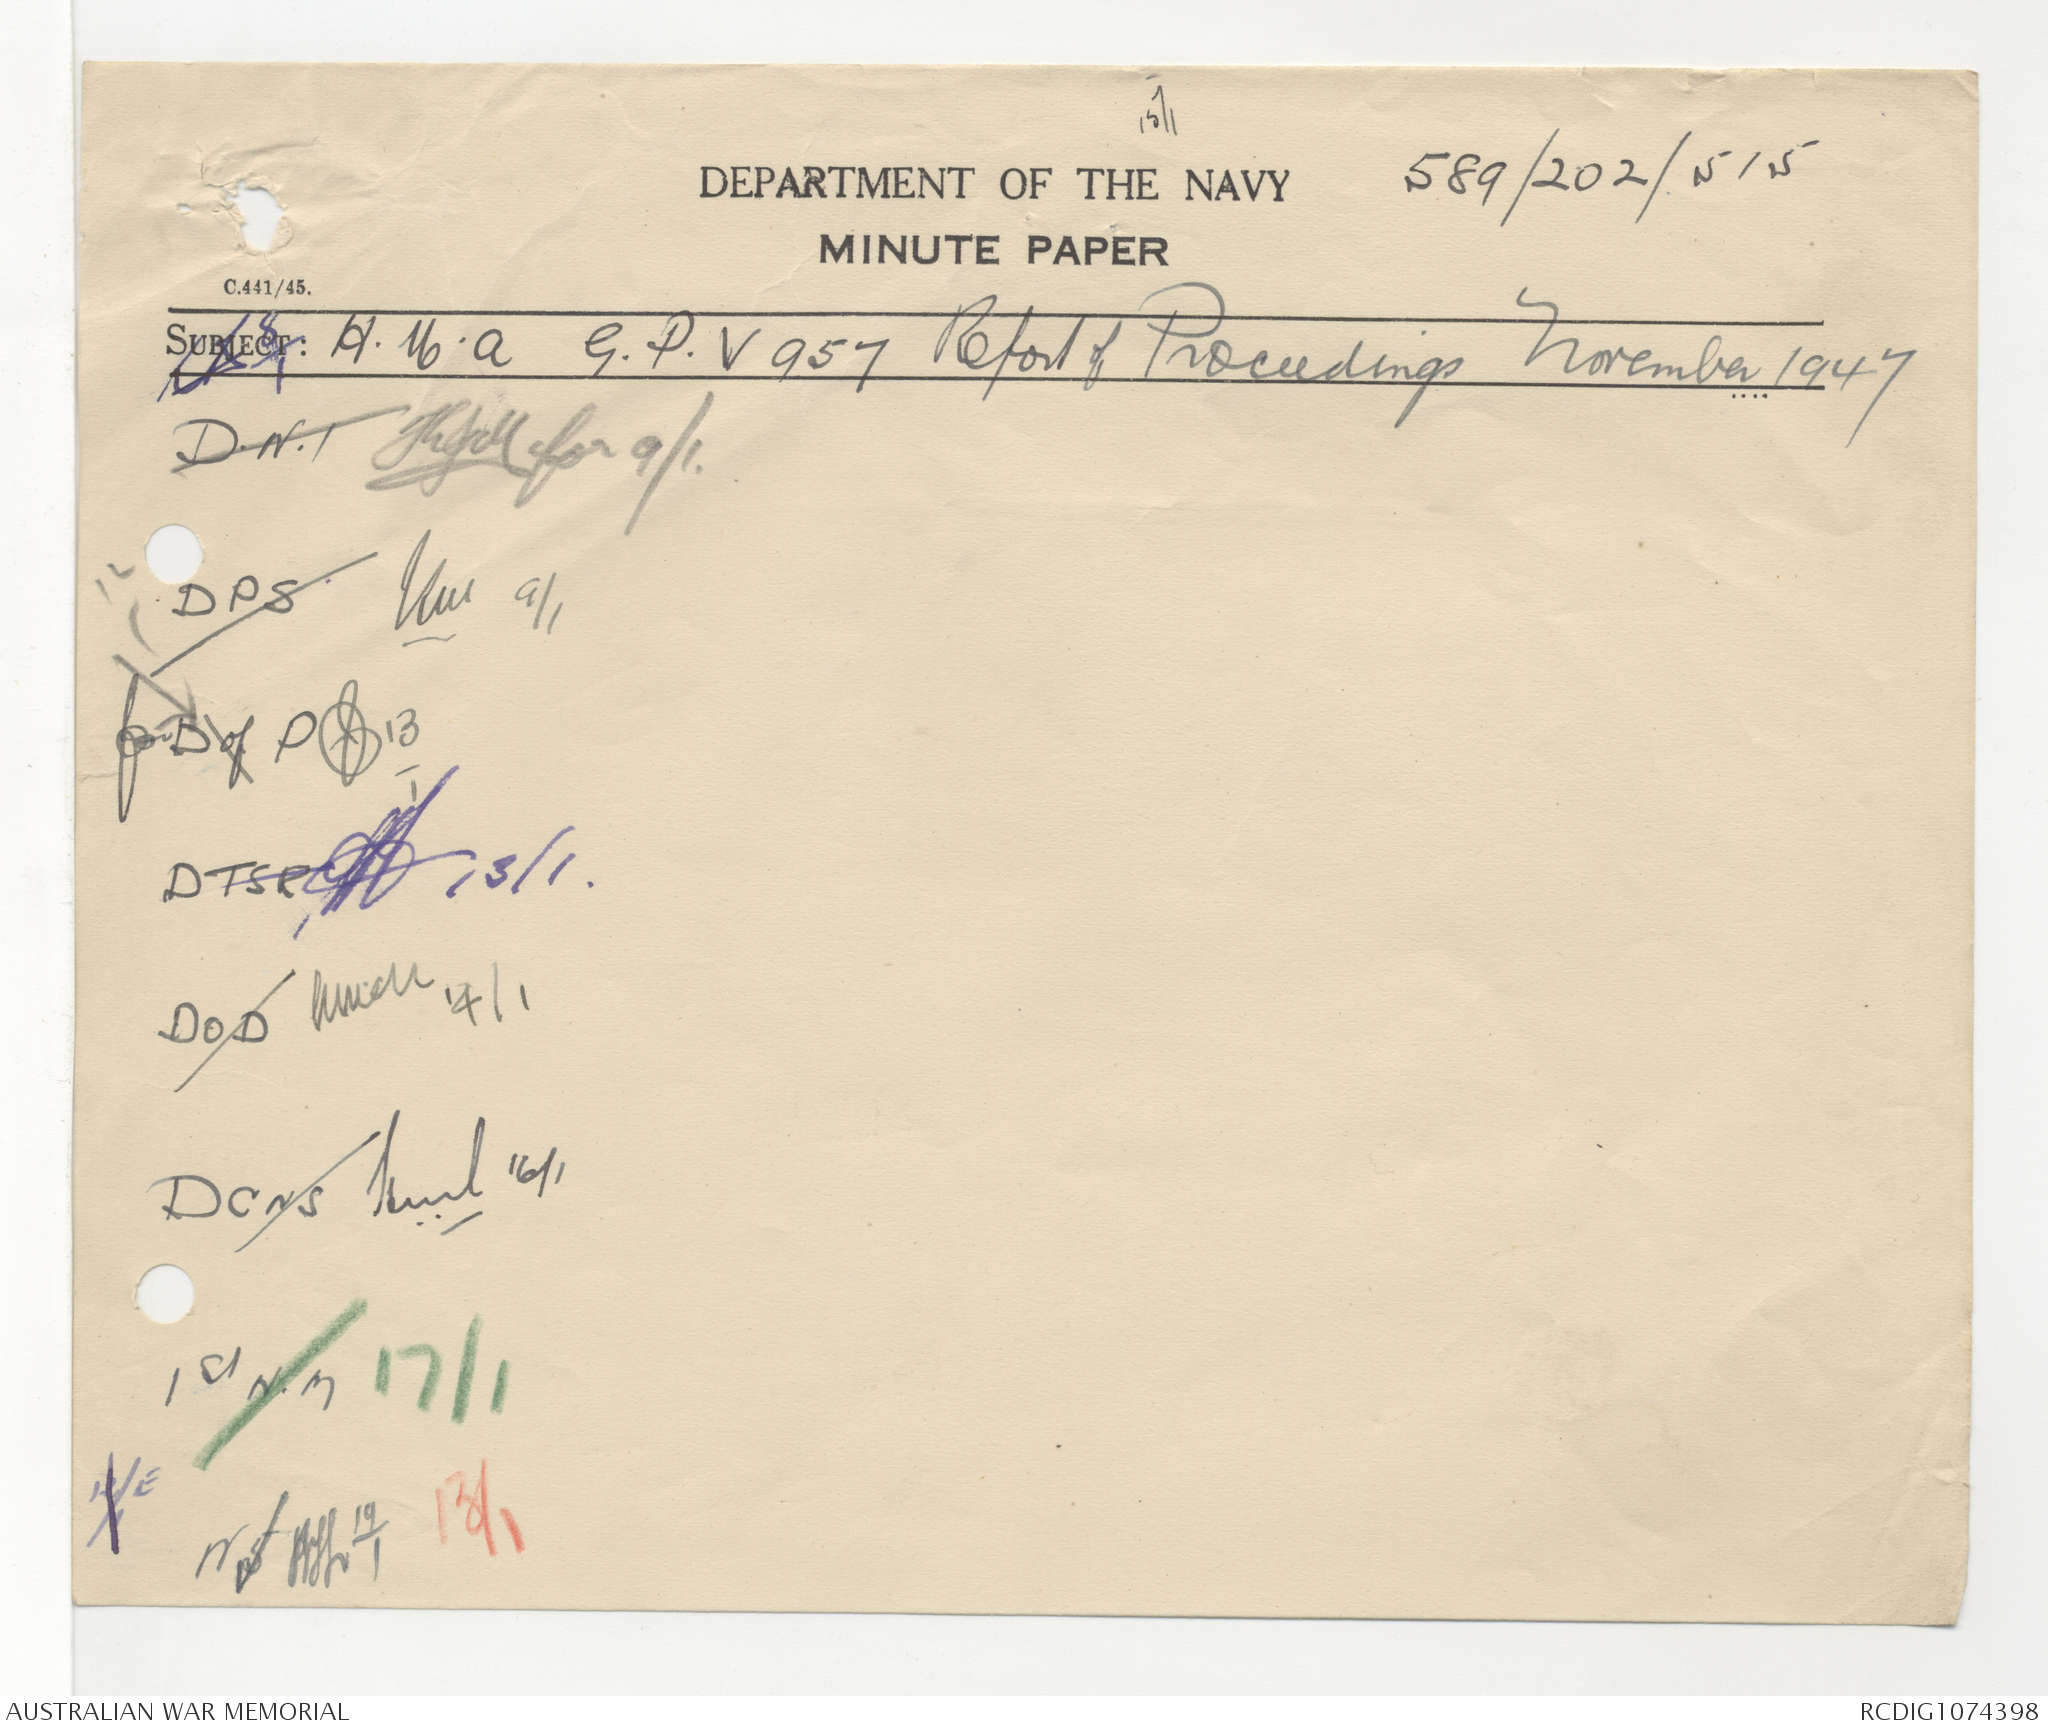 15/1
DEPARTMENT OF THE NAVY 589/202/515
MINUTE PAPER
C.441/45.
SUBJECT: H.M.A G.P.V 957 Report of Proceedings November 1947
D.N.I for 9/1.
DPS 9/1
12
for D of P 13/1
DTSR 13/1.
DOD 14/1
DCNS 16/1
1st N.M 17/1
19/1 13/1
AUSTRALIAN WAR MEMORIAL RCDIG1074398